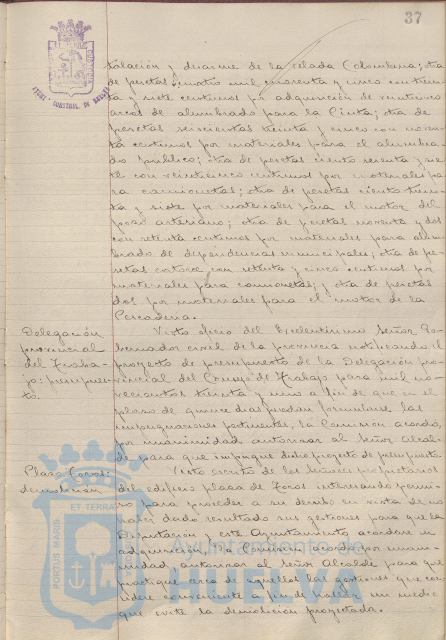 37
talación y desarme de la velada Colombina; otra
de pesetas cuatro mil cuarenta y cinco con trein-
ta y siete centimos por adquisición de veinticinco
arcos de alumbrado para la Cinta; otra de
pesetas seiscientas treinta y cinco con noven-
ta centimos por materiales para el alumbra-
do público; otra de pesetas ciento sesenta y sie-
te con veinticinco centimos por materiales pa-
ra camionetas; otra de pesetas ciento trein-
ta y siete por materiales para el motor del
pozo artesiano; otra de pesetas noventa y dos
con setenta centimos por materiales para alum-
brado de dependencias municipales; otra de pe-
setas catorce con setenta y cinco centimos por
materiales para camionetas; y otra de pesetas
dos por materiales para el motor de la
Pescadería.
Delegación
provincial
del Traba-
jo: presupues-
to.
Visto oficio del Excelentísimo Señor Go-
bernador civil de la provincia notificando el
proyecto de presupuesto de la Delegación pro-
vincial del Consejo de Trabajo para mil no-
vecientos treinta y uno a fin de que en el
plazo de quince dias puedan formularse las
impugnaciones pertinentes, la Comisión acordó,
por unanimidad autorizar al Señor Alcal-
de para que impugne dicho proyecto de presupuesto.
Plaza Toros:
demolición
Visto escrito de los Señores propietarios
del edificio plaza de Toros interesando permi-
so para proceder a su derribo en vista de no
haber dado resultado sus gestiones para que la
Diputación y este Ayuntamiento acordaren su
adquisición, la Comisión acordó por unani-
midad autorizar al Señor Alcalde para que
practique cerca de aquellos las gestiones que con-
sidere conveniente a fin de hallar un medio
que evite la demolición proyectada.
PORTUS MARIS ET TERRAE
Ayuntamiento de
HUELVA